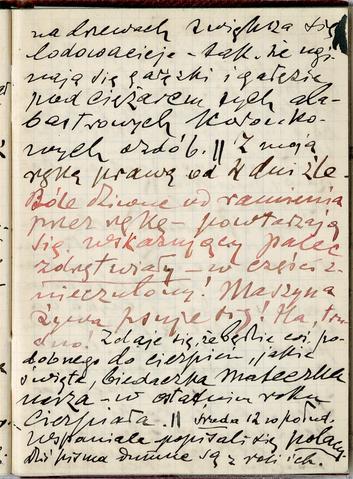 na drzewach zwiększa się
lodowacieje - tak, że ugi-
nają się gałązki i gałęzie
pod ciężarem tych ala-
bastrowych koronko-
wych ozdób. || Z moją
ręką prawą od 4 dni źle -
Bóle dziwne od ramienia
przez rękę - powtarzają
się, wskazujący palec
zdrętwiały - w części z-
nieczulony! Maszyna
żywa psuje się! Ha, tru-
dno! Zdaje się, że będzie coś po-
dobnego do cierpień, jakie
święta, biedaczka Mateczka
nasza - w ostatnim roku
cierpiała. || Środa 12 w połud.
wspaniale popisali się polacy
dziś pisma dumne są z roli ich.